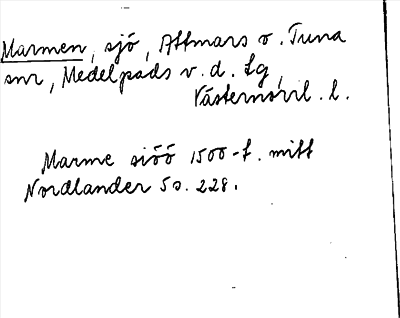 Marmen, sjö, Attmars o. Tuna
snr, Medelpads v. d. tg,
Västernorrl. l.
Marme siöö 1500-t. mitt
Nordlander So. 228.